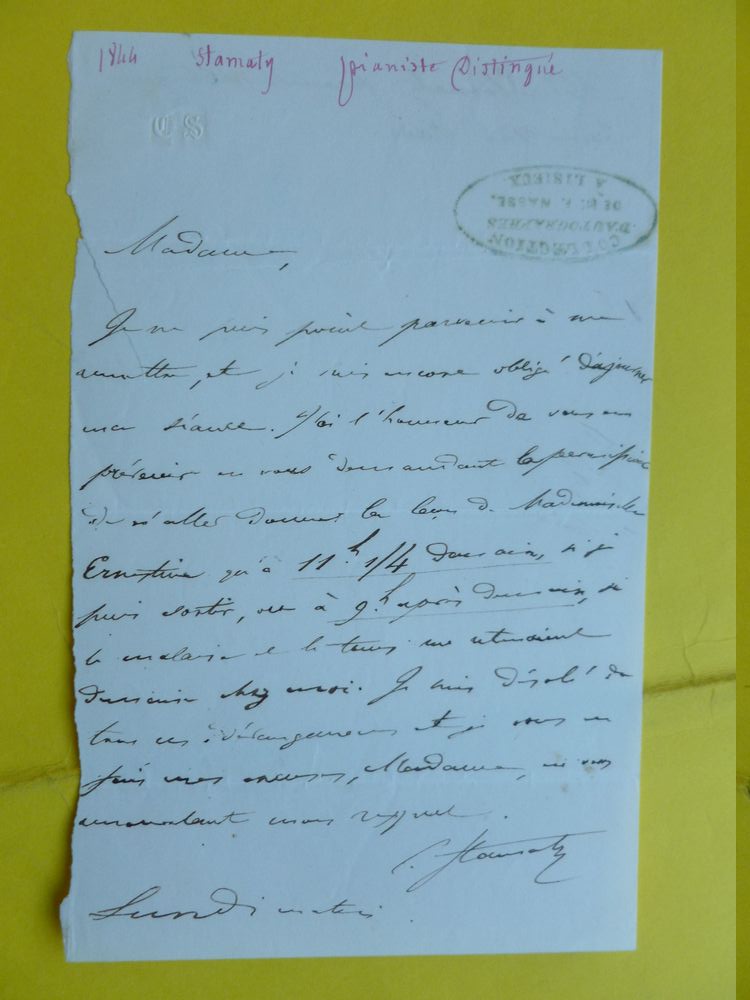 1844 Stamaty pianiste Distingué
CS
COLLECTION
D'AUTOGRAPHES
DE Mr. F. MASSE,
A LISIEUX.
Madame,
Je ne puis point parvenir à me
remettre, et je suis encore obligé d'ajourner
ma séance. J'ai l'honneur de vous en
prévenir en vous demandant la permission
de n'aller donner la leçon de Mademoiselle
Ernestine qu'à 11h 1/4 demain, si je
puis sortir, ou à 9h après demain, si
le malaise et le tems me retenaient
demain chez moi. Je suis désolé de
tous ces dérangemens et je vous en
fais mes excuses, Madame, en vous
renouvelant mon respect.
C. Stamaty
Lundi matin.